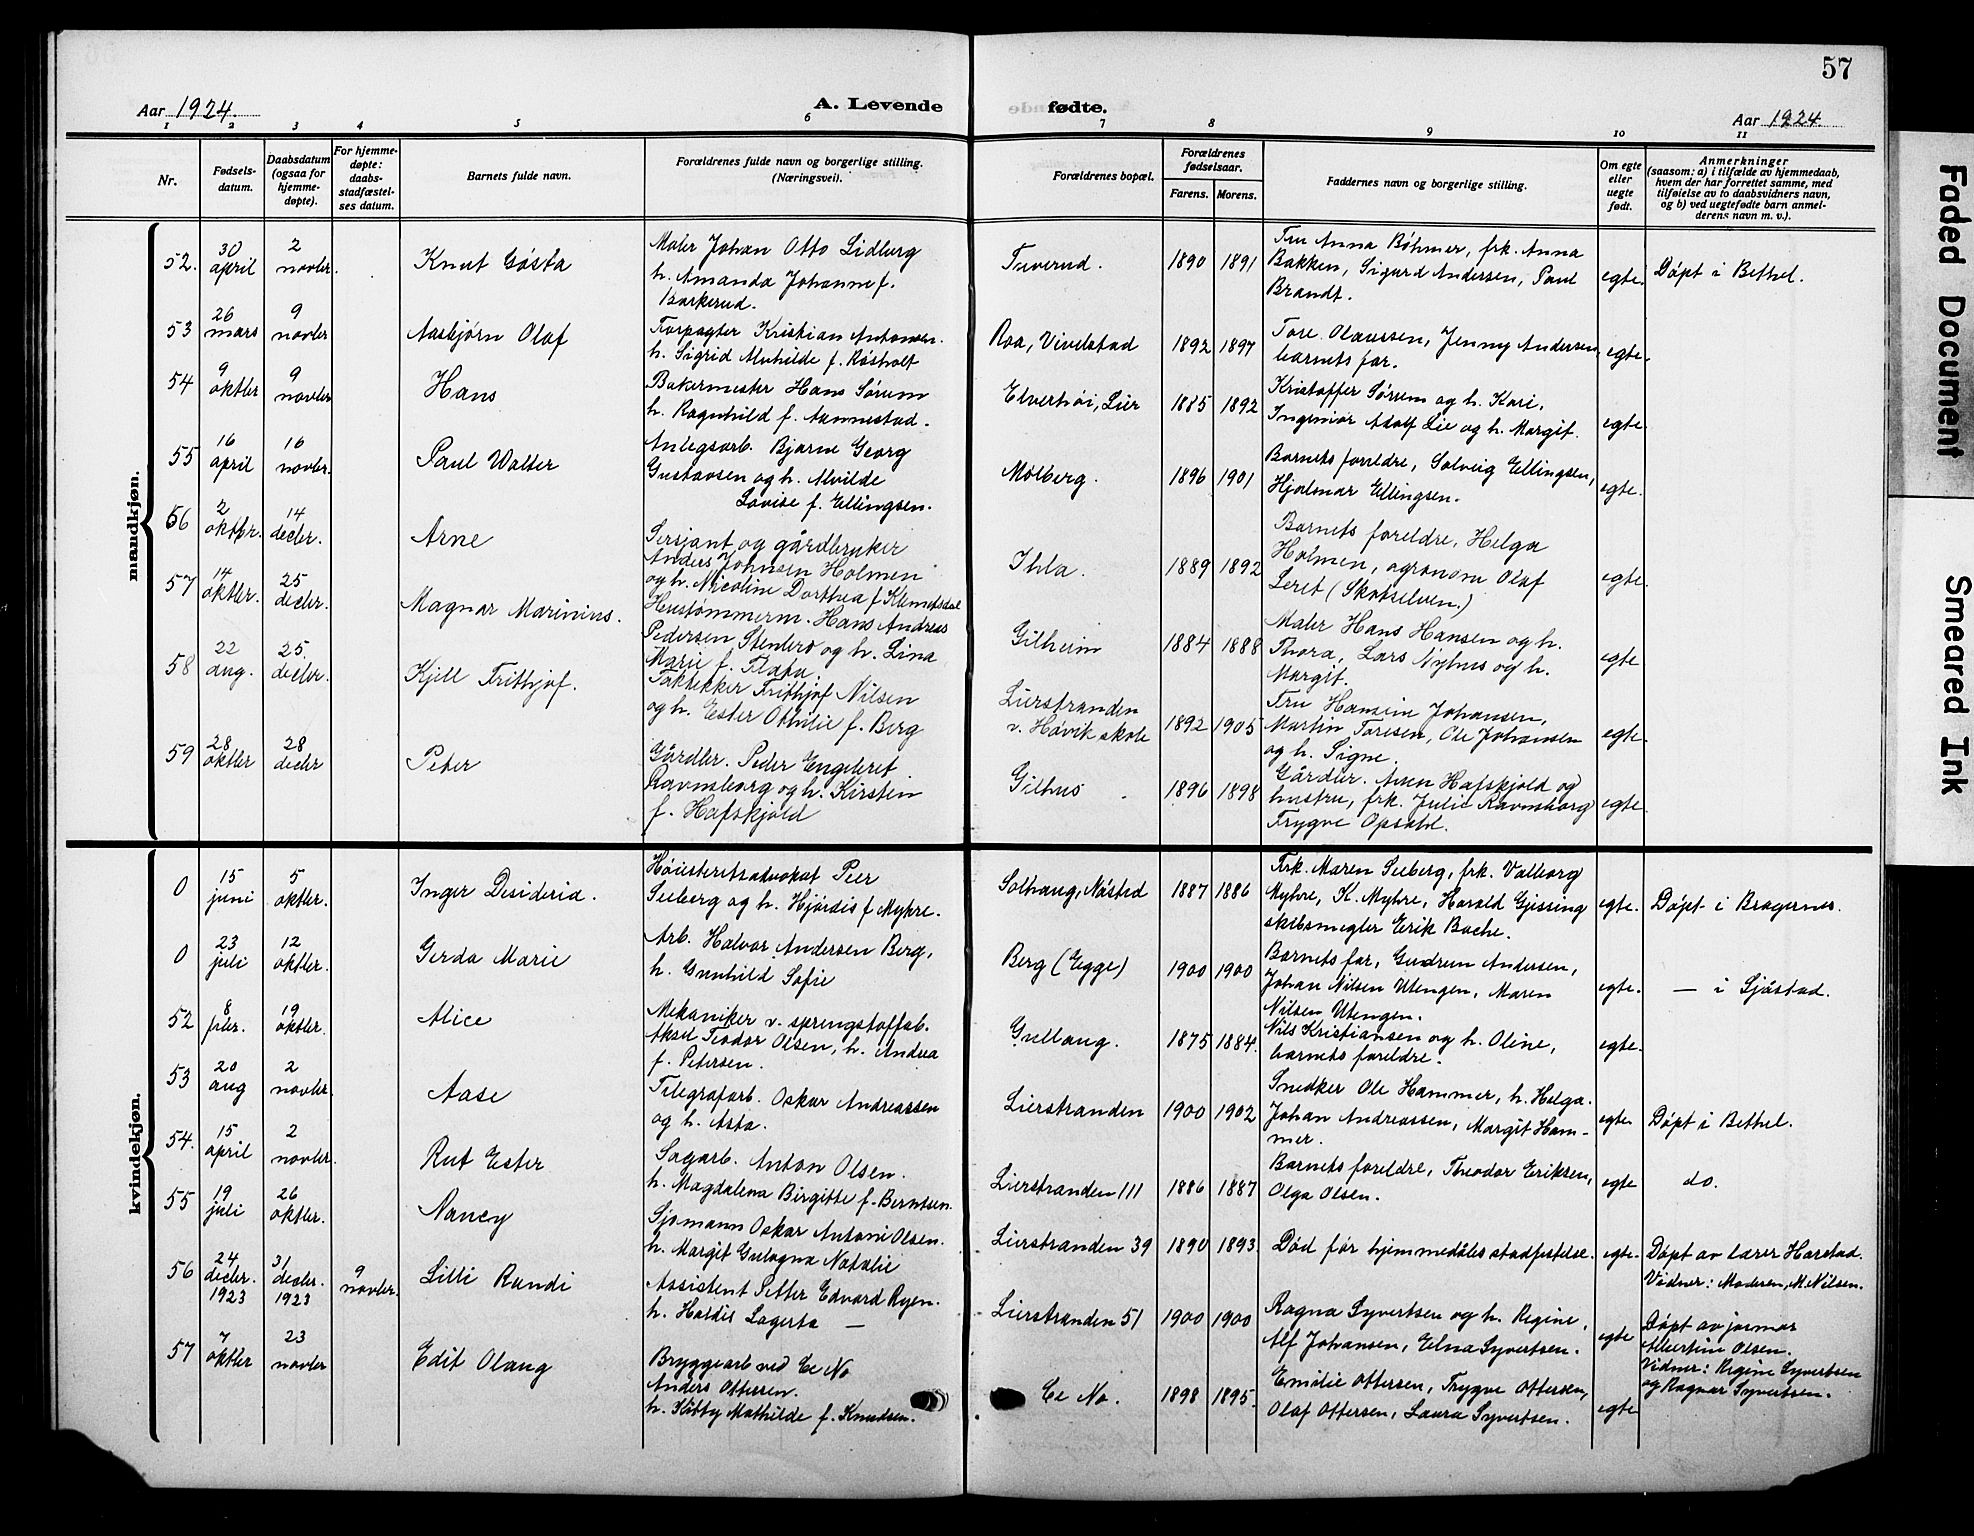 57
Aar 1924.
A. Levende fødte.
Aar 1924.
1 2 3 4 5 6 7 8 9 10 11
Nr.
Fødsels-
datum.
Daabsdatum
(ogsaa for
hjemme-
døpte).
For hjemme-
døpte:
daabs-
stadfæstel-
ses datum.
Barnets fulde navn.
Forældrenes fulde navn og borgerlige stilling.
(Næringsvei).
Forældrenes bopæl.
Forældrenes
fødselsaar.
Farens. Morens.
Faddernes navn og borgerlige stilling.
Om egte
eller
uegte
født.
Anmerkninger
(saasom: a) i tilfælde av hjemmedaab,
hvem der har forrettet samme, med
tilføielse av to daabsvidners navn,
og b) ved uegtefødte barn anmel-
derens navn m. v.).
mandkjøn.
52. 30 april 2 novbr. Knut Gösta
Maler Johan Otto Lidberg
h. Amanda Johanne f.
Barkerud.
Tuverud. 1890 1891
Fru Anna Böhmer, frk. Anna
Bakken, Sigurd Andersen, Paul
Brandt.
egte. Döpt i Bethel.
53 26 mars 9 novbr Aasbjørn Olaf
Torpagter Kristian Antonsen.
h. Sigrid Alvhilde f. Røsholt
Roa, Vivelstad 1892 1897
Tore Olaussen, Jenny Andersen,
barnets far.
egte.
54 9 oktbr 9 novbr Hans
Bakermester Hans Sørum
h. Ragnhild f. Aannestad.
Elverhöi, Lier 1885 1892
Kristoffer Sørum og h. Kari.
Ingeniør Adolf Lie og h. Margit.
egte.
55 16 april 16 novbr. Paul Walter
Anlegsarb. Bjarne Georg
Gustavsen og h. Alvilde
Lovise f. Ellingsen.
Mölberg. 1896 1901
Barnets foreldre, Solveig Ellingsen,
Hjalmar Ellingsen.
egte.
56 2 oktbr. 14 decbr. Arne
Sersjant og gårdbruker
Anders Johnsen Holmen
og h. Nicoline Dorthea f. Klemetsdal
Ihla. 1889 1892
Barnets foreldre, Helga
Holmen, agronom Olaf
Leret (Skotselven.)
egte.
57 14 oktbr. 25 decbr. Magnar Marinius.
Hustømmerm. Hans Andreas
Pedersen Stenbro og h. Lina
Marie f. Flata
Gilheim 1884 1888
Maler Hans Hansen og h.
Thora, Lars Nyhus og h.
Margit.
egte
58 22 aug. 25. decbr. Kjell Frithjof.
Taktekker Frithjof Nilsen
og h. Ester Othilie f. Berg
Lierstranden
v. Høvik skole 1892 1905
Fru Hansine Johansen,
Martin Toresen, Ole Johansen
og h. Signe.
egte.
59 28 oktbr 28 decbr Peter
Gårdbr. Peder Engebret
Ravnsborg og h. Kirsten
f. Hafskjold
Gilhus 1896 1898
Gårdbr. Aven Hafskjold og
hustru, frk. Julie Ravnsborg
Trygve Opsahl.
egte.
kvindekjøn.
0 15 juni 5 oktbr. Inger Desideria.
Höiesteretsadvokat Peer
Seeberg og h. Hjördis f Myhre.
Solhaug, Nöstad 1887 1886
Frk. Maren Seeberg, frk. Valborg
Myhre, K. Myhre, Harald Gjessing
skibsmegler Erik Bache.
egte. Döpt i Bragernes.
0 23 juli 12 oktbr. Gerda Marie
Arb. Halvor Andersen Berg,
h. Gunhild Sofie
Berg (Egge) 1900 1900
Barnets far, Gudrun Andersen,
Johan Nilsen Utengen, Maren
Nilsen Utengen.
egte. — i Sjåstad.
52 8 febr. 19 oktbr. Alice
Mekaniker v. sprengstoffab.
Aksel Teodor Olsen, h. Andrea
f. Petersen.
Gullaug. 1875 1884.
Nils Kristiansen og h. Oline,
barnets foreldre.
egte.
53 20 aug 2 novbr. Aase
Telegrafarb. Oskar Andreassen
og h. Asta.
Lierstranden 1900 1902
Snedker Ole Hammer, h. Helga.
Johan Andreassen, Margit Ham-
mer.
egte. Döpt i Bethel.
54. 15 april 2 novbr. Rut Ester
Sagarb. Anton Olsen.
h. Magdalena Birgitte f. Berntsen.
Lierstranden 111 1886 1887
Barnets foreldre, Theodor Eriksen,
Olga Olsen.
egte do.
55 19 juli 26 oktbr. Nancy
Sjømann Oskar Antoni Olsen.
h. Margit Gulagna Natalie
Lierstranden 39 1890 1893.
Död før hjemmedåbs stadfestelse.
egte. Döpt av lærer Harstad.
Vidner: Moderen, M. Nilsen.
56 24 decbr. 1923 31 decbr. 1923 9 novbr. Lilli Randi
Assistent Petter Edvard Ryen.
h. Haldis Lagerta —
Lierstranden 51 1900 1900
Ragna Syvertsen og h. Regine,
Alf Johansen, Elna Syvertsen.
egte Döpt av jormor
Albertine Olsen.
Vidner: Regine Syvertsen
og Ragnar Syvertsen.
57 7 oktbr 23 novbr Edit Olaug
Bryggearb ved Ee No
Anders Ottersen.
h. Kitty Mathilde f. Knudsen.
Ee No. 1898 1895.
Emilie Ottersen, Trygve Ottersen,
Olaf Ottersen, Laura Syvertsen.
egte
Faded Document
Smeared Ink